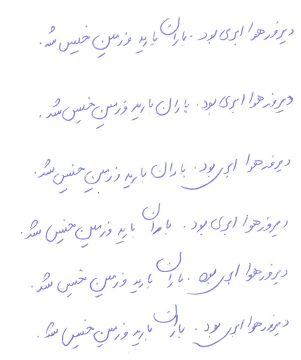 دیروز هوا ابری بود. باران بارید و زمین خیس شد.
دیروز هوا ابری بود. باران بارید و زمین خیس شد.
دیروز هوا ابری بود. باران بارید و زمین خیس شد.
دیروز هوا ابری بود. باران بارید و زمین خیس شد.
دیروز هوا ابری بود. باران بارید و زمین خیس شد.
دیروز هوا ابری بود. باران بارید و زمین خیس شد.